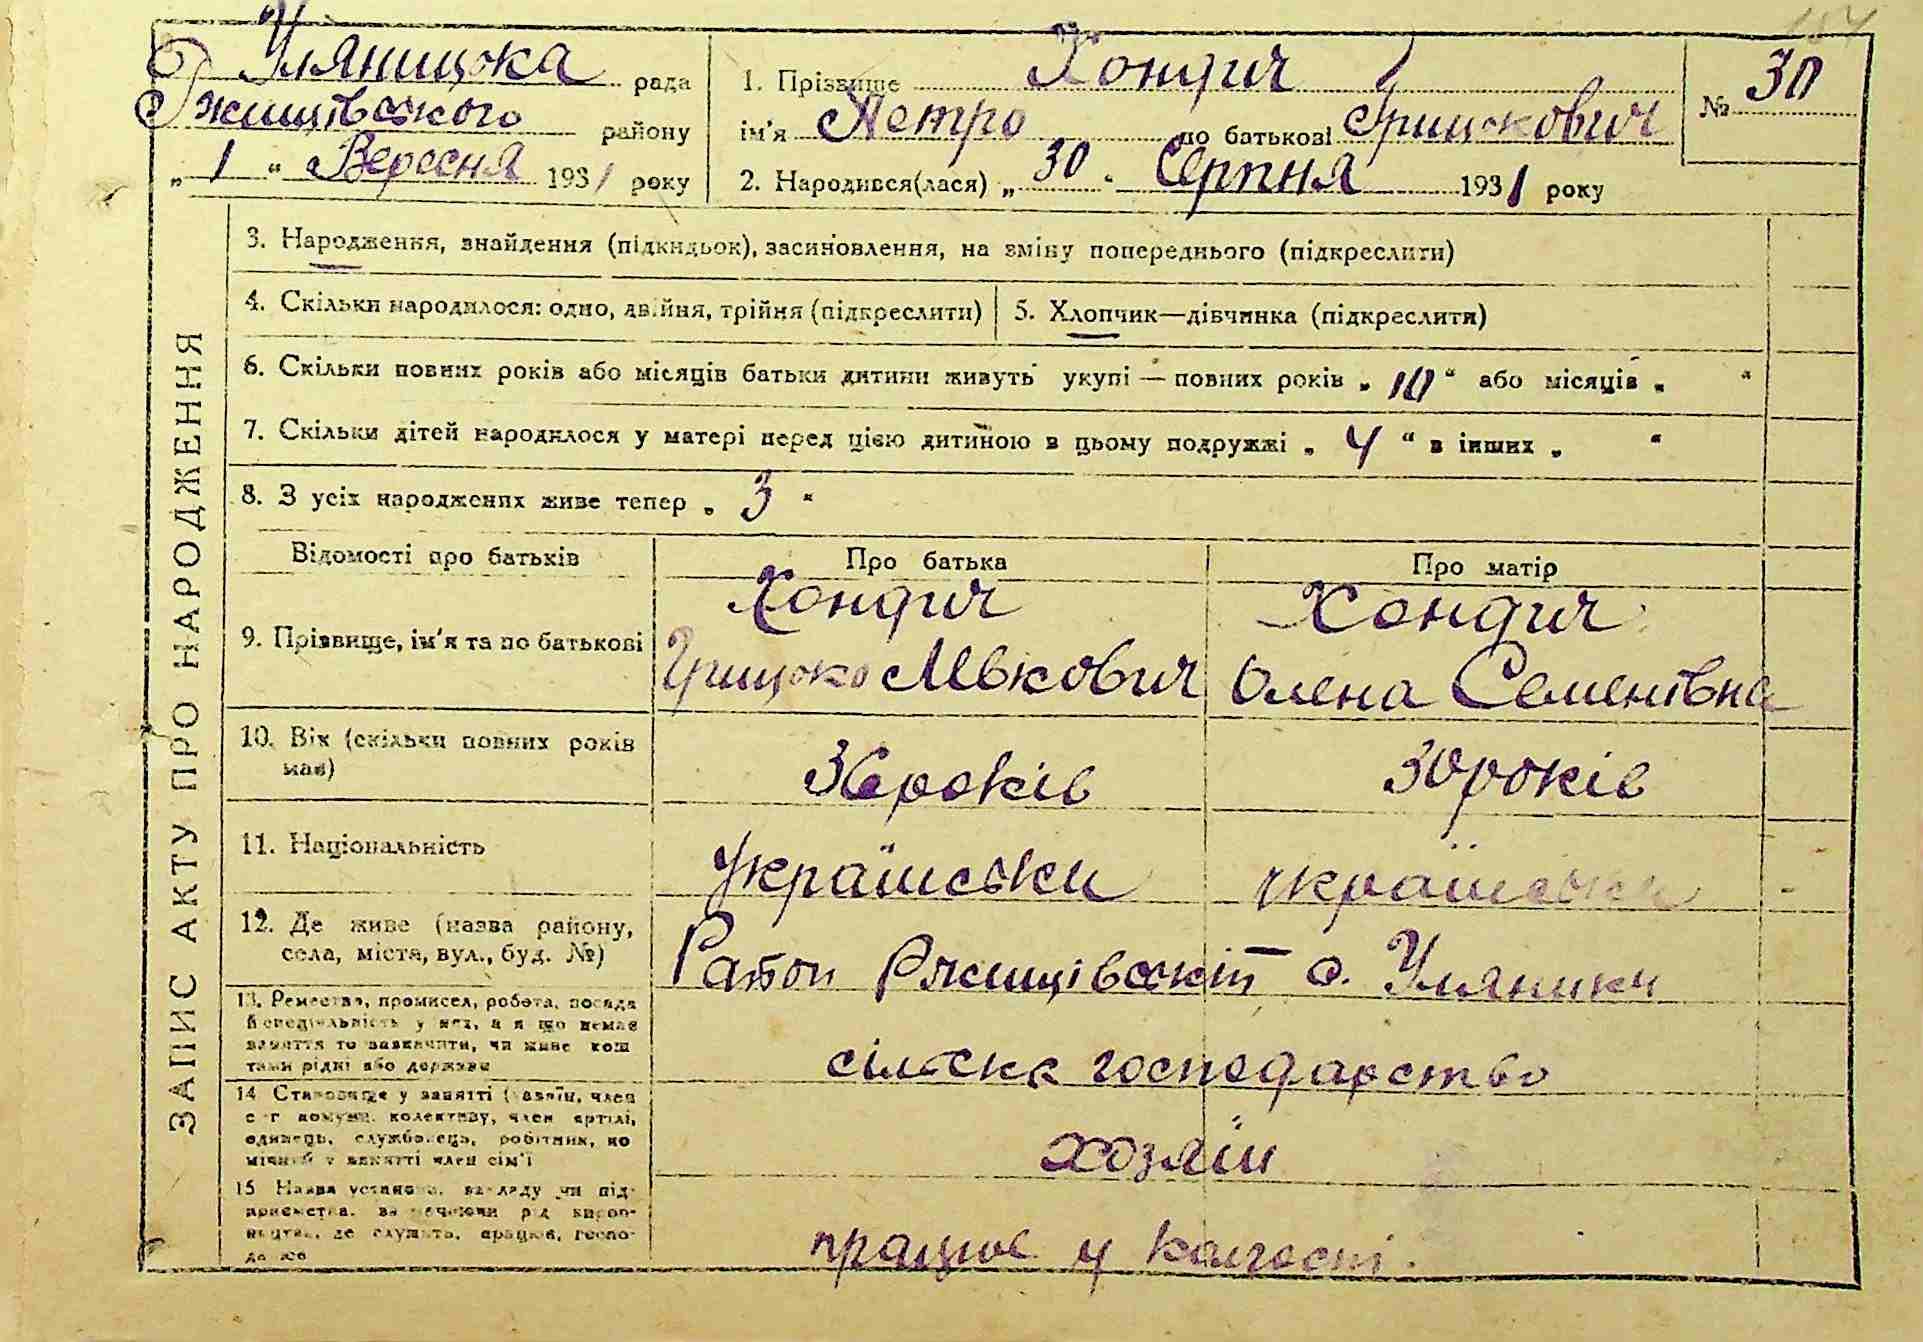 187
Уляницька рада
Ржищівського району
„ 1 “ Вересня 1931 року
1. Прізвище Хондич
ім'я Петро по батькові Грицькович
2. Народився(лася) „ 30 “ Серпня 1931 року
№ 30
ЗАПИС АКТУ ПРО НАРОДЖЕННЯ
3. Народження, знайдення (підкидьок), засиновлення, на зміну попереднього (підкреслити)
4. Скільки народилося: одно, двійня, трійня (підкреслити)
5. Хлопчик—дівчинка (підкреслити)
6. Скільки повних років або місяців батьки дитини живуть укупі — повних років „ 10 “ або місяців „ “
7. Скільки дітей народилося у матері перед цією дитиною в цьому подружжі „ 4 “ в інших „ “
8. З усіх народжених живе тепер „ 3 “
Відомості про батьків
Про батька
Про матір
9. Прізвище, ім'я та по батькові
Хондич
Грицько
Хондич
Олена Семенівна
10. Вік (скільки повних років
має)
36 років
30 років
11. Національність
Українськи
українськи
12. Де живе (назва району,
села, міста, вул., буд. №)
Район Ржищівский с. Уляники
13. Ремество, промисел, робота, посада
й спеціяльність у них, а якщо немає
заняття то зазначити, чи живе кош
тами рідні або держави
сільске господарство
14 Становище у занятті (хазяїн, член
с-г комуни, колективу, член артілі,
одинець, службовець, робітник, по
мічний у занятті член сім'ї
хозяїн
15 Назва установи, закладу чи під-
приємства, зазначаючи рід вироб-
ництва, де служить, працює, госпо-
працює у колгоспі.